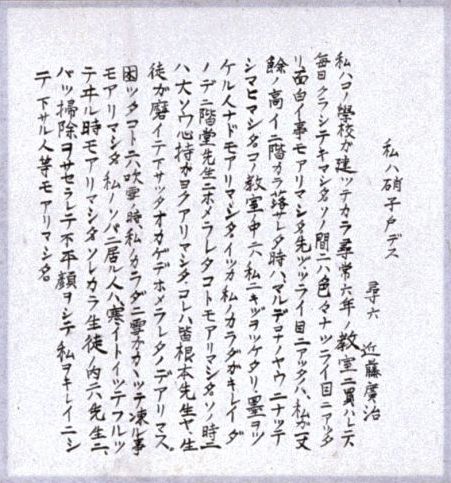 私ハ硝子戸デス
尋六　近藤廣治
私ハコノ學校ガ建ツテカラ尋常六年ノ教室ニ貰ハレテ
毎日クラシテキマシタソノ間ニハ色々ナツライ目ニアツタ
リ面白イ事モアリマシタ先ヅツライ目ニアツタノハ、私ガ一丈
餘ノ高イ二階カラ落サレタ時ハ、マルデコナノヤウニナツテ
シマヒマシタコノ教室ノ中ニハ私ニキヅヲツケタリ、墨ヲツ
ケル人ナドモアリマシタイツカ私ノカラダガキレイダ
ノデ二階堂先生ニホメラレタコトモアリマシタソノ時ニ
ハ大ソウ心持ガヨクアリマシタコレハ皆根本先生ヤ、生
徒ガ磨イテ下サツタオカゲデホメラレタノデアリマス。
困ツタコトニハ吹雪ノ時、私ノカラダニ雪ガカヽツテ凍ル事
モアリマシタ私ノソバニ居ル人ハ、寒イトイツテフルツ
テヰル時モアリマシタソレカラ生徒ノ内ニハ先生ニ、
バツ掃除ヲサセラレテ不平顔ヲシテ私ヲキレイニシ
テ下サル人等モアリマシタ